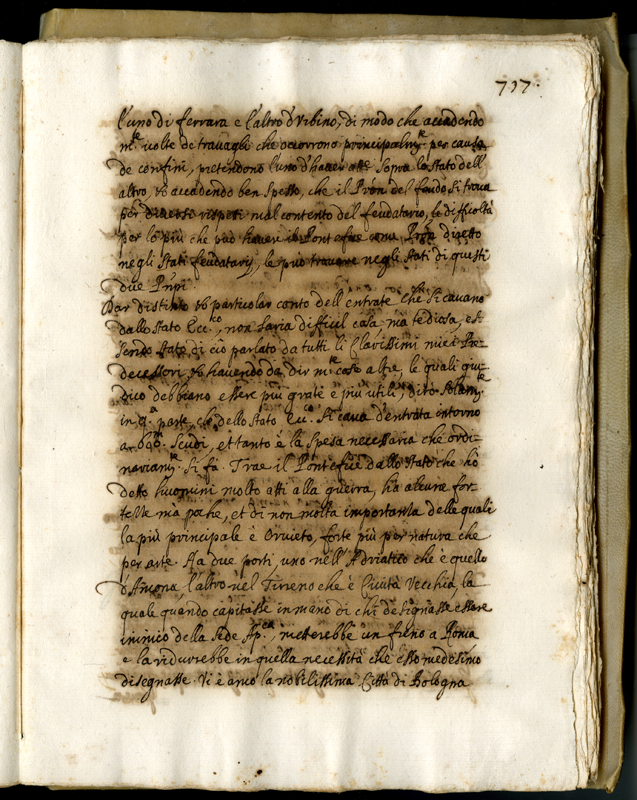 717.
l'uno di ferrara e l'altro d'Urbino, di modo che accadendo
m.te volte de travagli che occorrono principalm.te per causa
de confini, pretendono l'uno d'haver atte sopra lo stato dell'
altro, et accadendo ben spesso, che il Pron del feudo si trova
per diversi rispeti mal contento del feudatario, le difficoltà
per lo più che può havere il Pontefice diretto
negli stati feudatarij, le può trovare negli stati di questi
due Pnpi
Dar distinto et particolar conto dell'entrate che si cavano
dallo stato Ecc.co, non saria difficil cosa, ma tediosa, es-
sendo state di ciò parlato da tutti li Clarissimi miei Pre-
decessori, et havendo da dir m.te cose altre, le quali giu-
dico debbiano essere più grate e più utili, dirò solam.te
in q.a parte, che dello stato Ecc.o si cava d'entrata intorno
a 600 scudi, et tanto è la spesa necessaria che ordi-
nariam.te si fa. Trae il Pontefice dallo stato che hò
detto huomini molto atti alla guerra, hà alcune for-
tezze ma poche, et di non molta importanza delle quali
la più principale è Orvieto, forte più per natura che
per arte. Ha due porti, uno nell'Adriatico che è quello
d'Ancona l'altro nel Tirreno che è Civita Vecchia, la
quale quando capitasse in mano di chi designasse essere
inimico della Sede Ap.ca, metterebbe un freno a Roma
e la ridurrebbe in quella necessità che esso medesimo
disegnasse. Vi è anco la nobilissima Città di Bologna